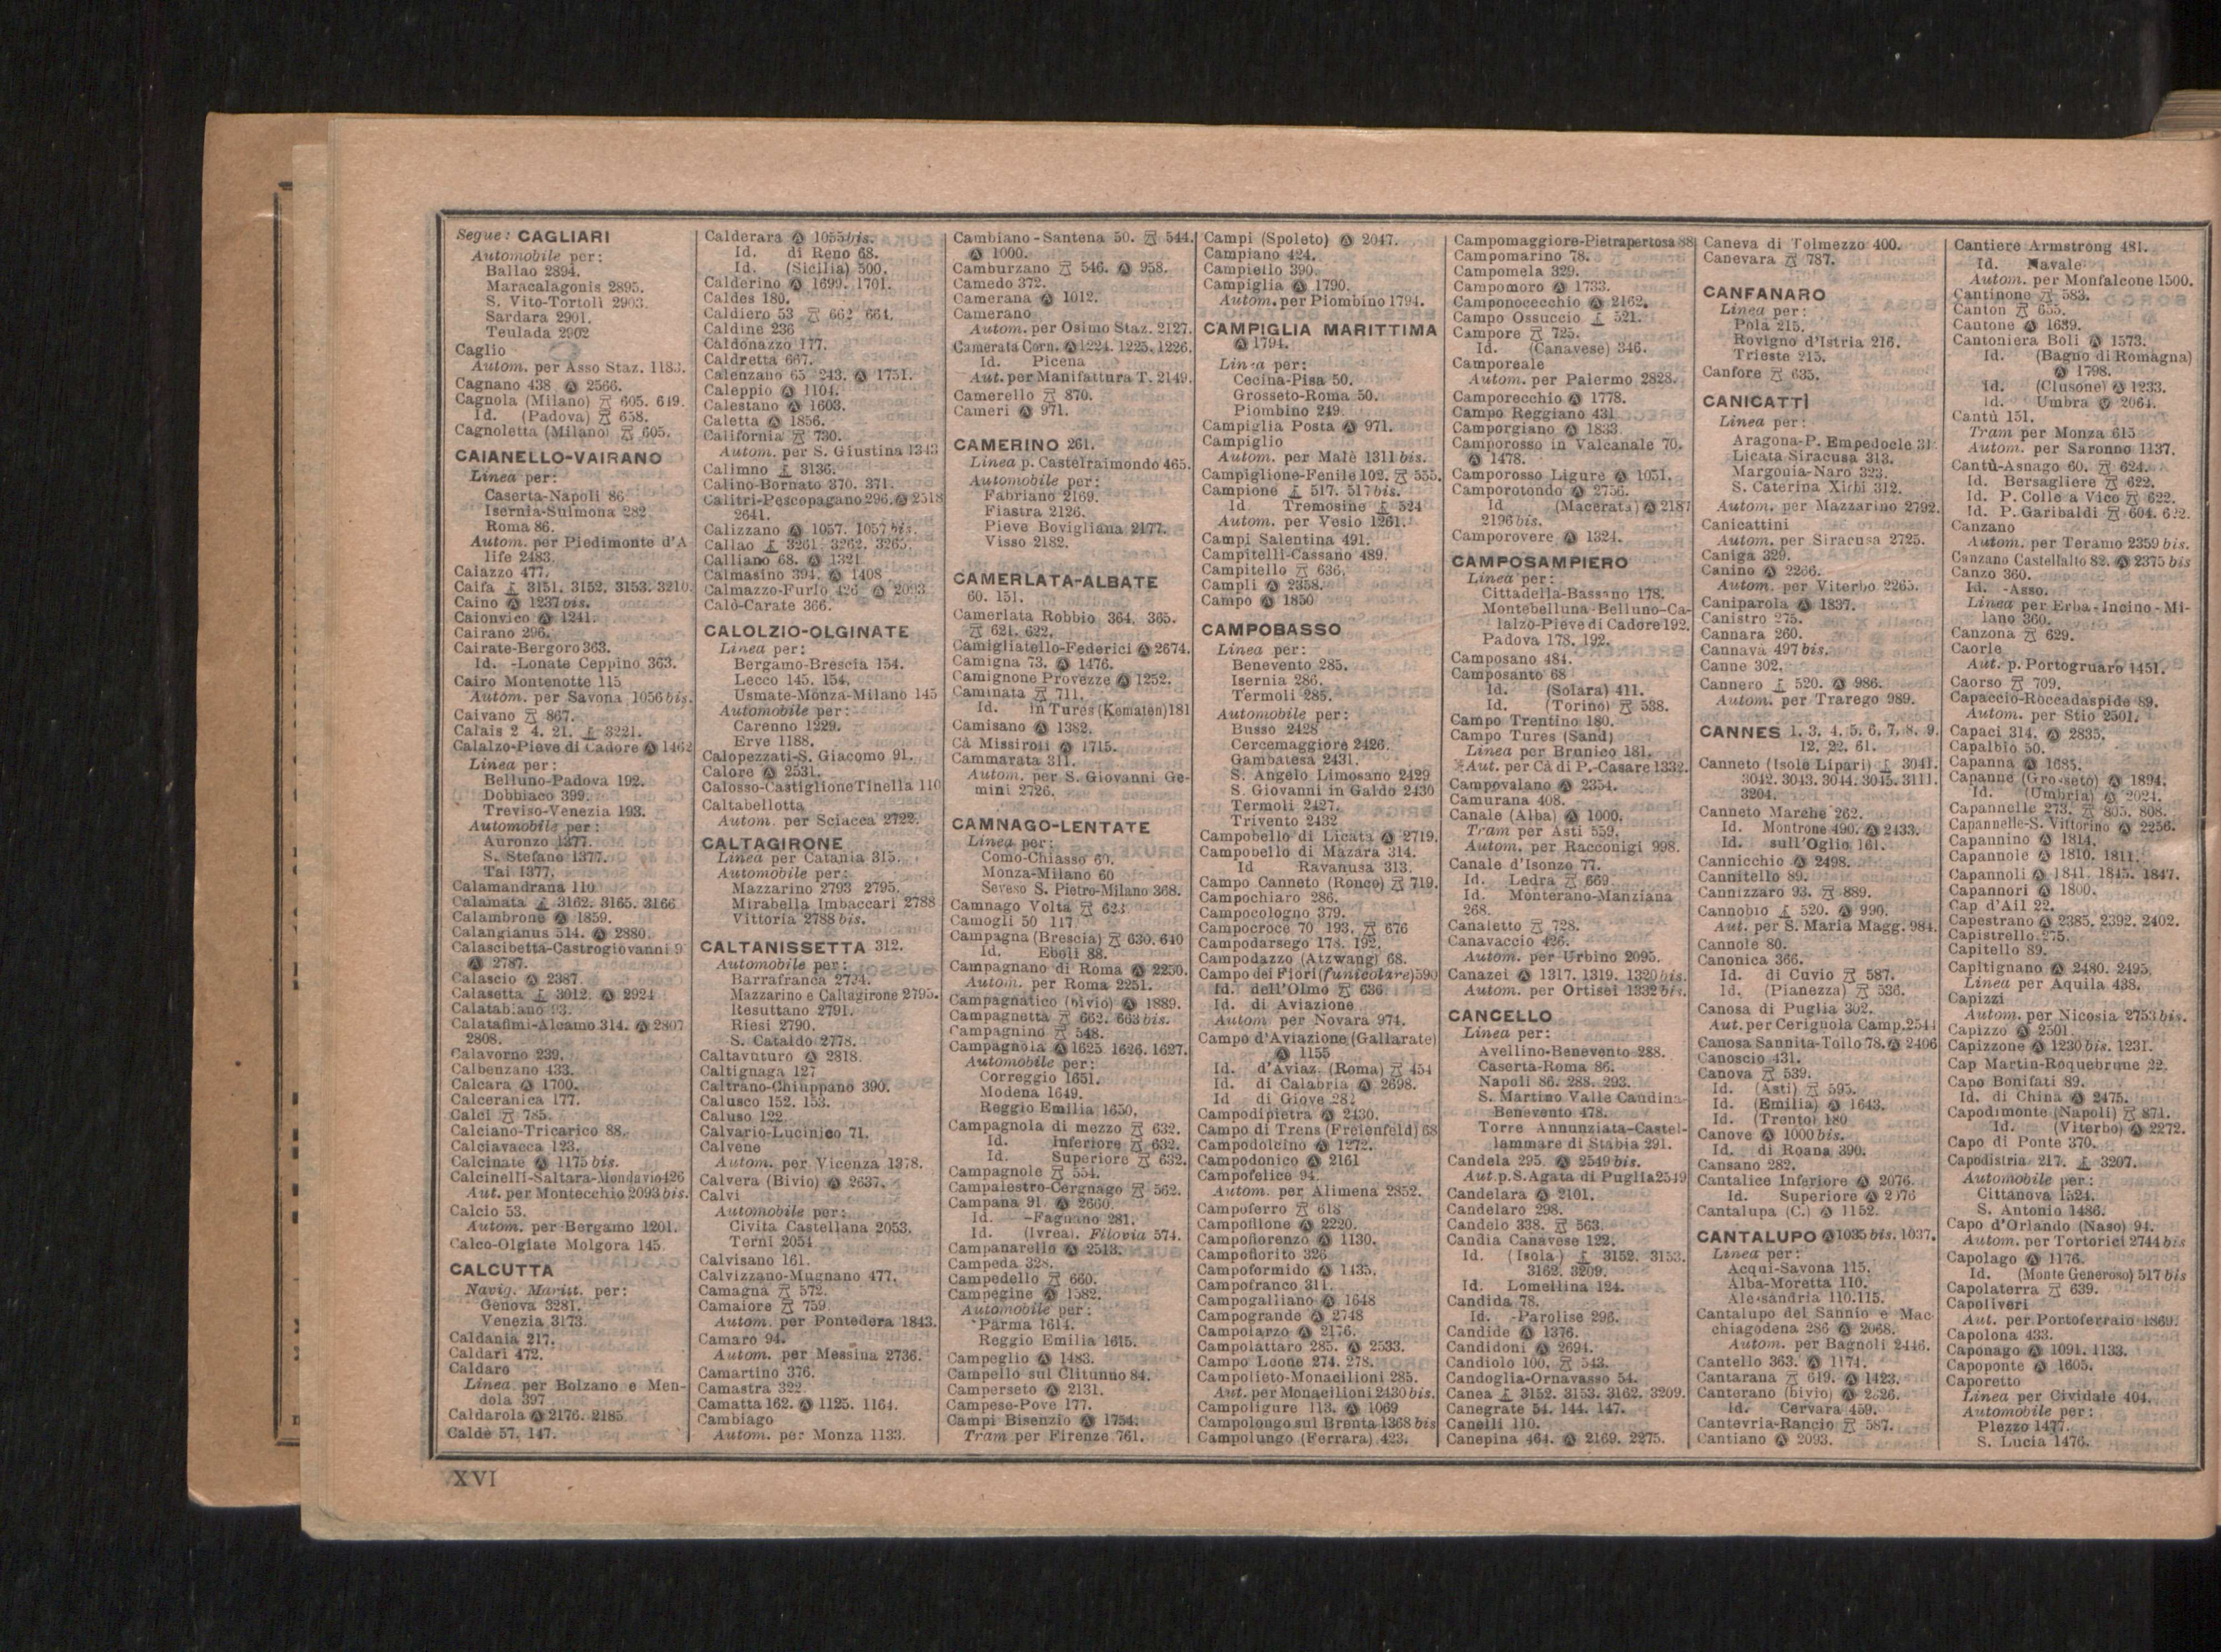 Segue: CAGLIARI
Automobile per:
Ballao 2894.
Maracalagonis 2895.
S. Vito-Tortolì 2903.
Sardara 2901.
Teulada 2902
Caglio
Autom. per Asso Staz. 1183.
Cagnano 438 Ⓐ 2566.
Cagnola (Milano) 605. 619.
Id. (Padova) 658.
Cagnoletta (Milano) 605.
CAIANELLO-VAIRANO
Linea per:
Caserta-Napoli 86
Isernia-Sulmona 282
Roma 86.
Autom. per Piedimonte d'A
life 2483.
Caiazzo 477.
Caifa 3151. 3152. 3153. 3210.
Caino Ⓐ 1237 bis.
Caionvico Ⓐ 1241.
Cairano 296.
Cairate-Bergoro 363.
Id. -Lonate Ceppino 363.
Cairo Montenotte 115
Autom. per Savona 1056 bis.
Caivano 867.
Calais 2 4. 21. 3221.
Calalzo-Pieve di Cadore Ⓐ 1462
Linea per:
Belluno-Padova 192.
Dobbiaco 399.
Treviso-Venezia 193.
Automobile per:
Auronzo 1377.
S. Stefano 1377.
Tai 1377.
Calamandrana 110
Calamata 3162. 3165. 3166
Calambrone Ⓐ 1859.
Calangianus 514. Ⓐ 2880.
Calascibetta-Castrogiovanni 9
Ⓐ 2787.
Calascio Ⓐ 2387.
Calasetta 3012. Ⓐ 2924
Calatabiano 93.
Calatafimi-Alcamo 314. Ⓐ 2807
2808.
Calavorno 239.
Calbenzano 433.
Calcara Ⓐ 1700.
Calceranica 177.
Calci 785.
Calciano-Tricarico 88.
Calciavacca 123.
Calcinate Ⓐ 1175 bis.
Calcinelli-Saltara-Mondavio 426
Aut. per Montecchio 2093 bis.
Calcio 53.
Autom. per Bergamo 1201.
Calco-Olgiate Molgora 145.
CALCUTTA
Navig. Maritt. per:
Genova 3281.
Venezia 3173.
Caldania 217.
Caldari 472.
Caldaro
Linea per Bolzano e Men-
dola 397
Caldarola Ⓐ 2176. 2185
Caldè 57. 147.
Calderara Ⓐ 1055 bis.
Id. di Reno 68.
Id. (Sicilia) 500.
Calderino Ⓐ 1699. 1701.
Caldes 180.
Caldiero 53 662 664.
Caldine 236
Caldonazzo 177.
Caldretta 667.
Calenzano 65 243. Ⓐ 1751.
Caleppio Ⓐ 1104.
Calestano Ⓐ 1603.
Caletta Ⓐ 1856.
California 730.
Autom. per S. Giustina 1343
Calimno 3136.
Calino-Bornato 370. 371.
Calitri-Pescopagano 296. Ⓐ 2518
2641.
Calizzano Ⓐ 1057. 1057 bis.
Callao 3261. 3262. 3265.
Calliano 68. Ⓐ 1321
Calmasino 394. Ⓐ 1408
Calmazzo-Furlo 426 Ⓐ 2093
Calò-Carate 366.
CALOLZIO-OLGINATE
Linea per:
Bergamo-Brescia 154.
Lecco 145. 154.
Usmate-Monza-Milano 145
Automobile per:
Carenno 1229.
Erve 1188.
Calopezzati-S. Giacomo 91.
Calore Ⓐ 2531.
Calosso-Castiglione Tinella 110
Caltabellotta
Autom. per Sciacca 2722.
CALTAGIRONE
Linea per Catania 315.
Automobile per:
Mazzarino 2793 2795.
Mirabella Imbaccari 2788
Vittoria 2788 bis.
CALTANISSETTA 312.
Automobile per:
Barrafranca 2794.
Mazzarino e Caltagirone 2795.
Resuttano 2791.
Riesi 2790.
S. Cataldo 2778.
Caltavuturo Ⓐ 2818.
Caltignaga 127
Caltrano-Chiuppano 390.
Calusco 152. 153.
Caluso 122
Calvario-Lucinico 71.
Calvene
Autom. per Vicenza 1378.
Calvera (Bivio) Ⓐ 2637.
Calvi
Automobile per:
Civita Castellana 2053.
Terni 2054
Calvisano 161.
Calvizzano-Mugnano 477.
Camagna 572.
Camaiore 759
Autom. per Pontedera 1843.
Camaro 94.
Autom. per Messina 2736.
Camartino 376.
Camastra 322
Camatta 162. Ⓐ 1125. 1164.
Cambiago
Autom. per Monza 1133.
Cambiano-Santena 50. 544.
Ⓐ 1000.
Camburzano 546. Ⓐ 958.
Camedo 372.
Camerana Ⓐ 1012.
Camerano
Autom. per Osimo Staz. 2127.
Camerata Corn. Ⓐ 1224. 1225. 1226.
Id. Picena
Aut. per Manifattura T. 2149.
Camerello 870.
Cameri Ⓐ 971.
CAMERINO 261.
Linea p. Castelraimondo 465.
Automobile per:
Fabriano 2169.
Fiastra 2126.
Pieve Bovigliana 2177.
Visso 2182.
CAMERLATA-ALBATE
60. 151.
Camerlata Robbio 364. 365.
621. 622.
Camigliatello-Federici Ⓐ 2674.
Camigna 73. Ⓐ 1476.
Camignone Provezze Ⓐ 1252.
Caminata 711.
Id. in Tures (Kematen) 181
Camisano Ⓐ 1382.
Cà Missiroli Ⓐ 1715.
Cammarata 311.
Autom. per S. Giovanni Ge-
mini 2726.
CAMNAGO-LENTATE
Linea per:
Como-Chiasso 60.
Monza-Milano 60
Seveso S. Pietro-Milano 368.
Camnago Volta 623
Camogli 50 117
Campagna (Brescia) 630. 640
Id. Eboli 88.
Campagnano di Roma Ⓐ 2250.
Autom. per Roma 2251.
Campagnatico (bivio) Ⓐ 1889.
Campagnetta 662. 663 bis.
Campagnino 548.
Campagnola Ⓐ 1625 1626. 1627.
Automobile per:
Correggio 1651.
Modena 1649.
Reggio Emilia 1650.
Campagnola di mezzo 632.
Id. Inferiore 632.
Id. Superiore 632.
Campagnole 554.
Campalestro-Cergnago 562.
Campana 91 Ⓐ 2660.
Id. -Fagnano 281.
Id. (Ivrea). Filovia 574.
Campanarello Ⓐ 2513.
Campeda 328.
Campedello 660.
Campegine Ⓐ 1582.
Automobile per:
Parma 1614.
Reggio Emilia 1615.
Campeglio Ⓐ 1483.
Campello sul Clitunno 84.
Camperseto Ⓐ 2131.
Campese-Pove 177.
Campi Bisenzio Ⓐ 1754.
Tram per Firenze 761.
Campi (Spoleto) Ⓐ 2047.
Campiano 424.
Campiello 390.
Campiglia Ⓐ 1790.
Autom. per Piombino 1794.
CAMPIGLIA MARITTIMA
Ⓐ 1794.
Linea per:
Cecina-Pisa 50.
Grosseto-Roma 50.
Piombino 249.
Campiglia Posta Ⓐ 971.
Campiglio
Autom. per Malè 1311 bis.
Campiglione-Fenile 102. 555.
Campione 517. 517 bis.
Id Tremosine 524
Autom. per Vesio 1261.
Campi Salentina 491.
Campitelli-Cassano 489.
Campitello 636.
Campli Ⓐ 2358.
Campo Ⓐ 1850
CAMPOBASSO
Linea per:
Benevento 285.
Isernia 286.
Termoli 285.
Automobile per:
Busso 2428
Cercemaggiore 2426.
Gambatesa 2431.
S. Angelo Limosano 2429
S. Giovanni in Galdo 2430
Termoli 2427.
Trivento 2432
Campobello di Licata Ⓐ 2719.
Campobello di Mazara 314.
Id Ravanusa 313.
Campo Canneto (Ronco) 719.
Campochiaro 286.
Campocologno 379.
Campocroce 70 193. 676
Campodarsego 178. 192.
Campodazzo (Atzwang) 68.
Campo dei Fiori (funicolare) 590
Id. dell'Olmo 636
Id. di Aviazione
Autom per Novara 974.
Campo d'Aviazione (Gallarate)
Ⓐ 1155
Id. d'Aviaz. (Roma) 454
Id. di Calabria Ⓐ 2698.
Id di Giove 282
Campodipietra Ⓐ 2430.
Campo di Trens (Freienfeld) 68
Campodolcino Ⓐ 1272.
Campodonico Ⓐ 2161
Campofelice 94.
Autom. per Alimena 2852.
Campoferro 618
Campofilone Ⓐ 2220.
Campoflorenzo Ⓐ 1130.
Campofiorito 326
Campoformido Ⓐ 1435.
Campofranco 311.
Campogalliano Ⓐ 1648
Campogrande Ⓐ 2748
Campolarzo Ⓐ 2176.
Campolattaro 285. Ⓐ 2533.
Campo Leone 274. 278.
Campolieto-Monacilioni 285.
Aut. per Monacilioni 2430 bis.
Campoligure 113. Ⓐ 1069
Campolongo sul Brenta 1368 bis
Campolungo (Ferrara) 423.
Campomaggiore-Pietrapertosa 88
Campomarino 78.
Campomela 329.
Campomoro Ⓐ 1733.
Camponocecchio Ⓐ 2162.
Campo Ossuccio 521.
Campore 725.
Id. (Canavese) 346.
Camporeale
Autom. per Palermo 2828.
Camporecchio Ⓐ 1778.
Campo Reggiano 431
Camporgiano Ⓐ 1833
Camporosso in Valcanale 70.
Ⓐ 1478.
Camporosso Ligure Ⓐ 1051.
Camporotondo Ⓐ 2756.
Id (Macerata) Ⓐ 2187
2196 bis.
Camporovere Ⓐ 1324.
CAMPOSAMPIERO
Linea per:
Cittadella-Bassano 178.
Montebelluna-Belluno-Ca-
lalzo-Pieve di Cadore 192.
Padova 178. 192.
Camposano 484.
Camposanto 68
Id. (Solara) 411.
Id. (Torino) 538.
Campo Trentino 180.
Campo Tures (Sand)
Linea per Brunico 181.
Aut. per Cà di P.-Casare 1332.
Campovalano Ⓐ 2354.
Camurana 408.
Canale (Alba) Ⓐ 1000.
Tram per Asti 559.
Autom. per Racconigi 998.
Canale d'Isonzo 77.
Id. Ledra 669
Id. Monterano-Manziana
268.
Canaletto 728.
Canavaccio 426.
Autom. per Urbino 2095.
Canazei Ⓐ 1317. 1319. 1320 bis.
Autom. per Ortisei 1332 bis.
CANCELLO
Linea per:
Avellino-Benevento 288.
Caserta-Roma 86.
Napoli 86. 288. 293.
S. Martino Valle Caudina-
Benevento 478.
Torre Annunziata-Castel-
lammare di Stabia 291.
Candela 295. Ⓐ 2549 bis.
Aut. p. S. Agata di Puglia 2549
Candelara Ⓐ 2101.
Candelaro 298.
Candelo 338. 563.
Candia Canavese 122.
Id. (Isola) 3152. 3153.
3162. 3209.
Id. Lomellina 124.
Candida 78.
Id. -Parolise 296.
Candide Ⓐ 1376.
Candidoni Ⓐ 2694.
Candiolo 100. 543.
Candoglia-Ornavasso 54.
Canea 3152. 3153. 3162. 3209.
Canegrate 54. 144. 147.
Canelli 110.
Canepina 464. Ⓐ 2169. 2275.
Caneva di Tolmezzo 400.
Canevara 787.
CANFANARO
Linea per:
Pola 215.
Rovigno d'Istria 216.
Trieste 215.
Canfore 635.
CANICATTÌ
Linea per:
Aragona-P. Empedocle 31
Licata Siracusa 313.
Margonia-Naro 323.
S. Caterina Xirbi 312.
Autom. per Mazzarino 2792.
Canicattini
Autom. per Siracusa 2725.
Caniga 329.
Canino Ⓐ 2266.
Autom. per Viterbo 2265.
Caniparola Ⓐ 1837.
Canistro 275.
Cannara 260.
Cannavà 497 bis.
Canne 302.
Cannero 520. Ⓐ 986.
Autom. per Trarego 989.
CANNES 1. 3. 4. 5. 6. 7. 8. 9.
12. 22. 61.
Canneto (Isole Lipari) 3041.
3042. 3043. 3044. 3045. 3111.
3204.
Canneto Marche 262.
Id. Montrone 490. Ⓐ 2433.
Id. sull'Oglio 161.
Cannicchio Ⓐ 2498.
Cannitello 89.
Cannizzaro 93. 889.
Cannobio 520. Ⓐ 990.
Aut. per S. Maria Magg. 984.
Cannole 80.
Canonica 366.
Id. di Cuvio 587.
Id. (Pianezza) 536.
Canosa di Puglia 302.
Aut. per Cerignola Camp. 2541
Canosa Sannita-Tollo 78. Ⓐ 2406
Canoscio 431.
Canova 539.
Id. (Asti) 595.
Id. (Emilia) Ⓐ 1643.
Id. (Trento) 180
Canove Ⓐ 1000 bis.
Id. di Roana 390.
Cansano 282.
Cantalice Inferiore Ⓐ 2076.
Id. Superiore Ⓐ 2076
Cantalupa (C.) Ⓐ 1152.
CANTALUPO Ⓐ 1035 bis. 1037.
Linea per:
Acqui-Savona 115.
Alba-Moretta 110.
Alessandria 110.115.
Cantalupo del Sannio e Mac
chiagodena 286 Ⓐ 2068.
Autom. per Bagnoli 2446.
Cantello 363. Ⓐ 1174.
Cantarana 619. Ⓐ 1423.
Canterano (bivio) Ⓐ 2326.
Id. Cervara 459.
Cantevria-Rancio 587.
Cantiano Ⓐ 2093.
Cantiere Armstrong 481.
Id. Navale
Autom. per Monfalcone 1500.
Cantinone 583.
Canton 655.
Cantone Ⓐ 1639.
Cantoniera Boli Ⓐ 1573.
Id. (Bagno di Romagna)
Ⓐ 1798.
Id. (Clusone) Ⓐ 1233.
Id. Umbra Ⓐ 2064.
Cantù 151.
Tram per Monza 615
Autom. per Saronno 1137.
Cantù-Asnago 60. 624.
Id. Bersagliere 622.
Id. P. Colle a Vico 622.
Id. P. Garibaldi 604. 622.
Canzano
Autom. per Teramo 2359 bis.
Canzano Castellalto 82. Ⓐ 2375 bis
Canzo 360.
Id. -Asso.
Linea per Erba-Incino-Mi-
lano 360.
Canzona 629.
Caorle
Aut. p. Portogruaro 1451.
Caorso 709.
Capaccio-Roccadaspide 89.
Autom. per Stio 2501.
Capaci 314. Ⓐ 2835.
Capalbio 50.
Capanna Ⓐ 1685.
Capanne (Grosseto) Ⓐ 1894.
Id. (Umbria) Ⓐ 2024.
Capannelle 273. 805. 808.
Capannelle-S. Vittorino Ⓐ 2256.
Capannino Ⓐ 1814.
Capannole Ⓐ 1810. 1811.
Capannoli Ⓐ 1841. 1845. 1847.
Capannori Ⓐ 1800.
Cap d'Ail 22.
Capestrano Ⓐ 2385. 2392. 2402.
Capistrello 275.
Capitello 89.
Capitignano Ⓐ 2480. 2495.
Linea per Aquila 438.
Capizzi
Autom. per Nicosia 2753 bis.
Capizzo Ⓐ 2501
Capizzone Ⓐ 1230 bis. 1231.
Cap Martin-Roquebrune 22.
Capo Bonifati 89.
Id. di China Ⓐ 2475.
Capodimonte (Napoli) 871.
Id. (Viterbo) Ⓐ 2272.
Capo di Ponte 370.
Capodistria 217. 3207.
Automobile per:
Cittanova 1524.
S. Antonio 1486.
Capo d'Orlando (Naso) 94.
Autom. per Tortorici 2744 bis
Capolago Ⓐ 1176.
Id. (Monte Generoso) 517 bis
Capolaterra 639.
Capoliveri
Aut. per Portoferraio 1869.
Capolona 433.
Caponago Ⓐ 1091. 1133.
Capoponte Ⓐ 1605.
Caporetto
Linea per Cividale 404.
Automobile per:
Plezzo 1477.
S. Lucia 1476.
XVI